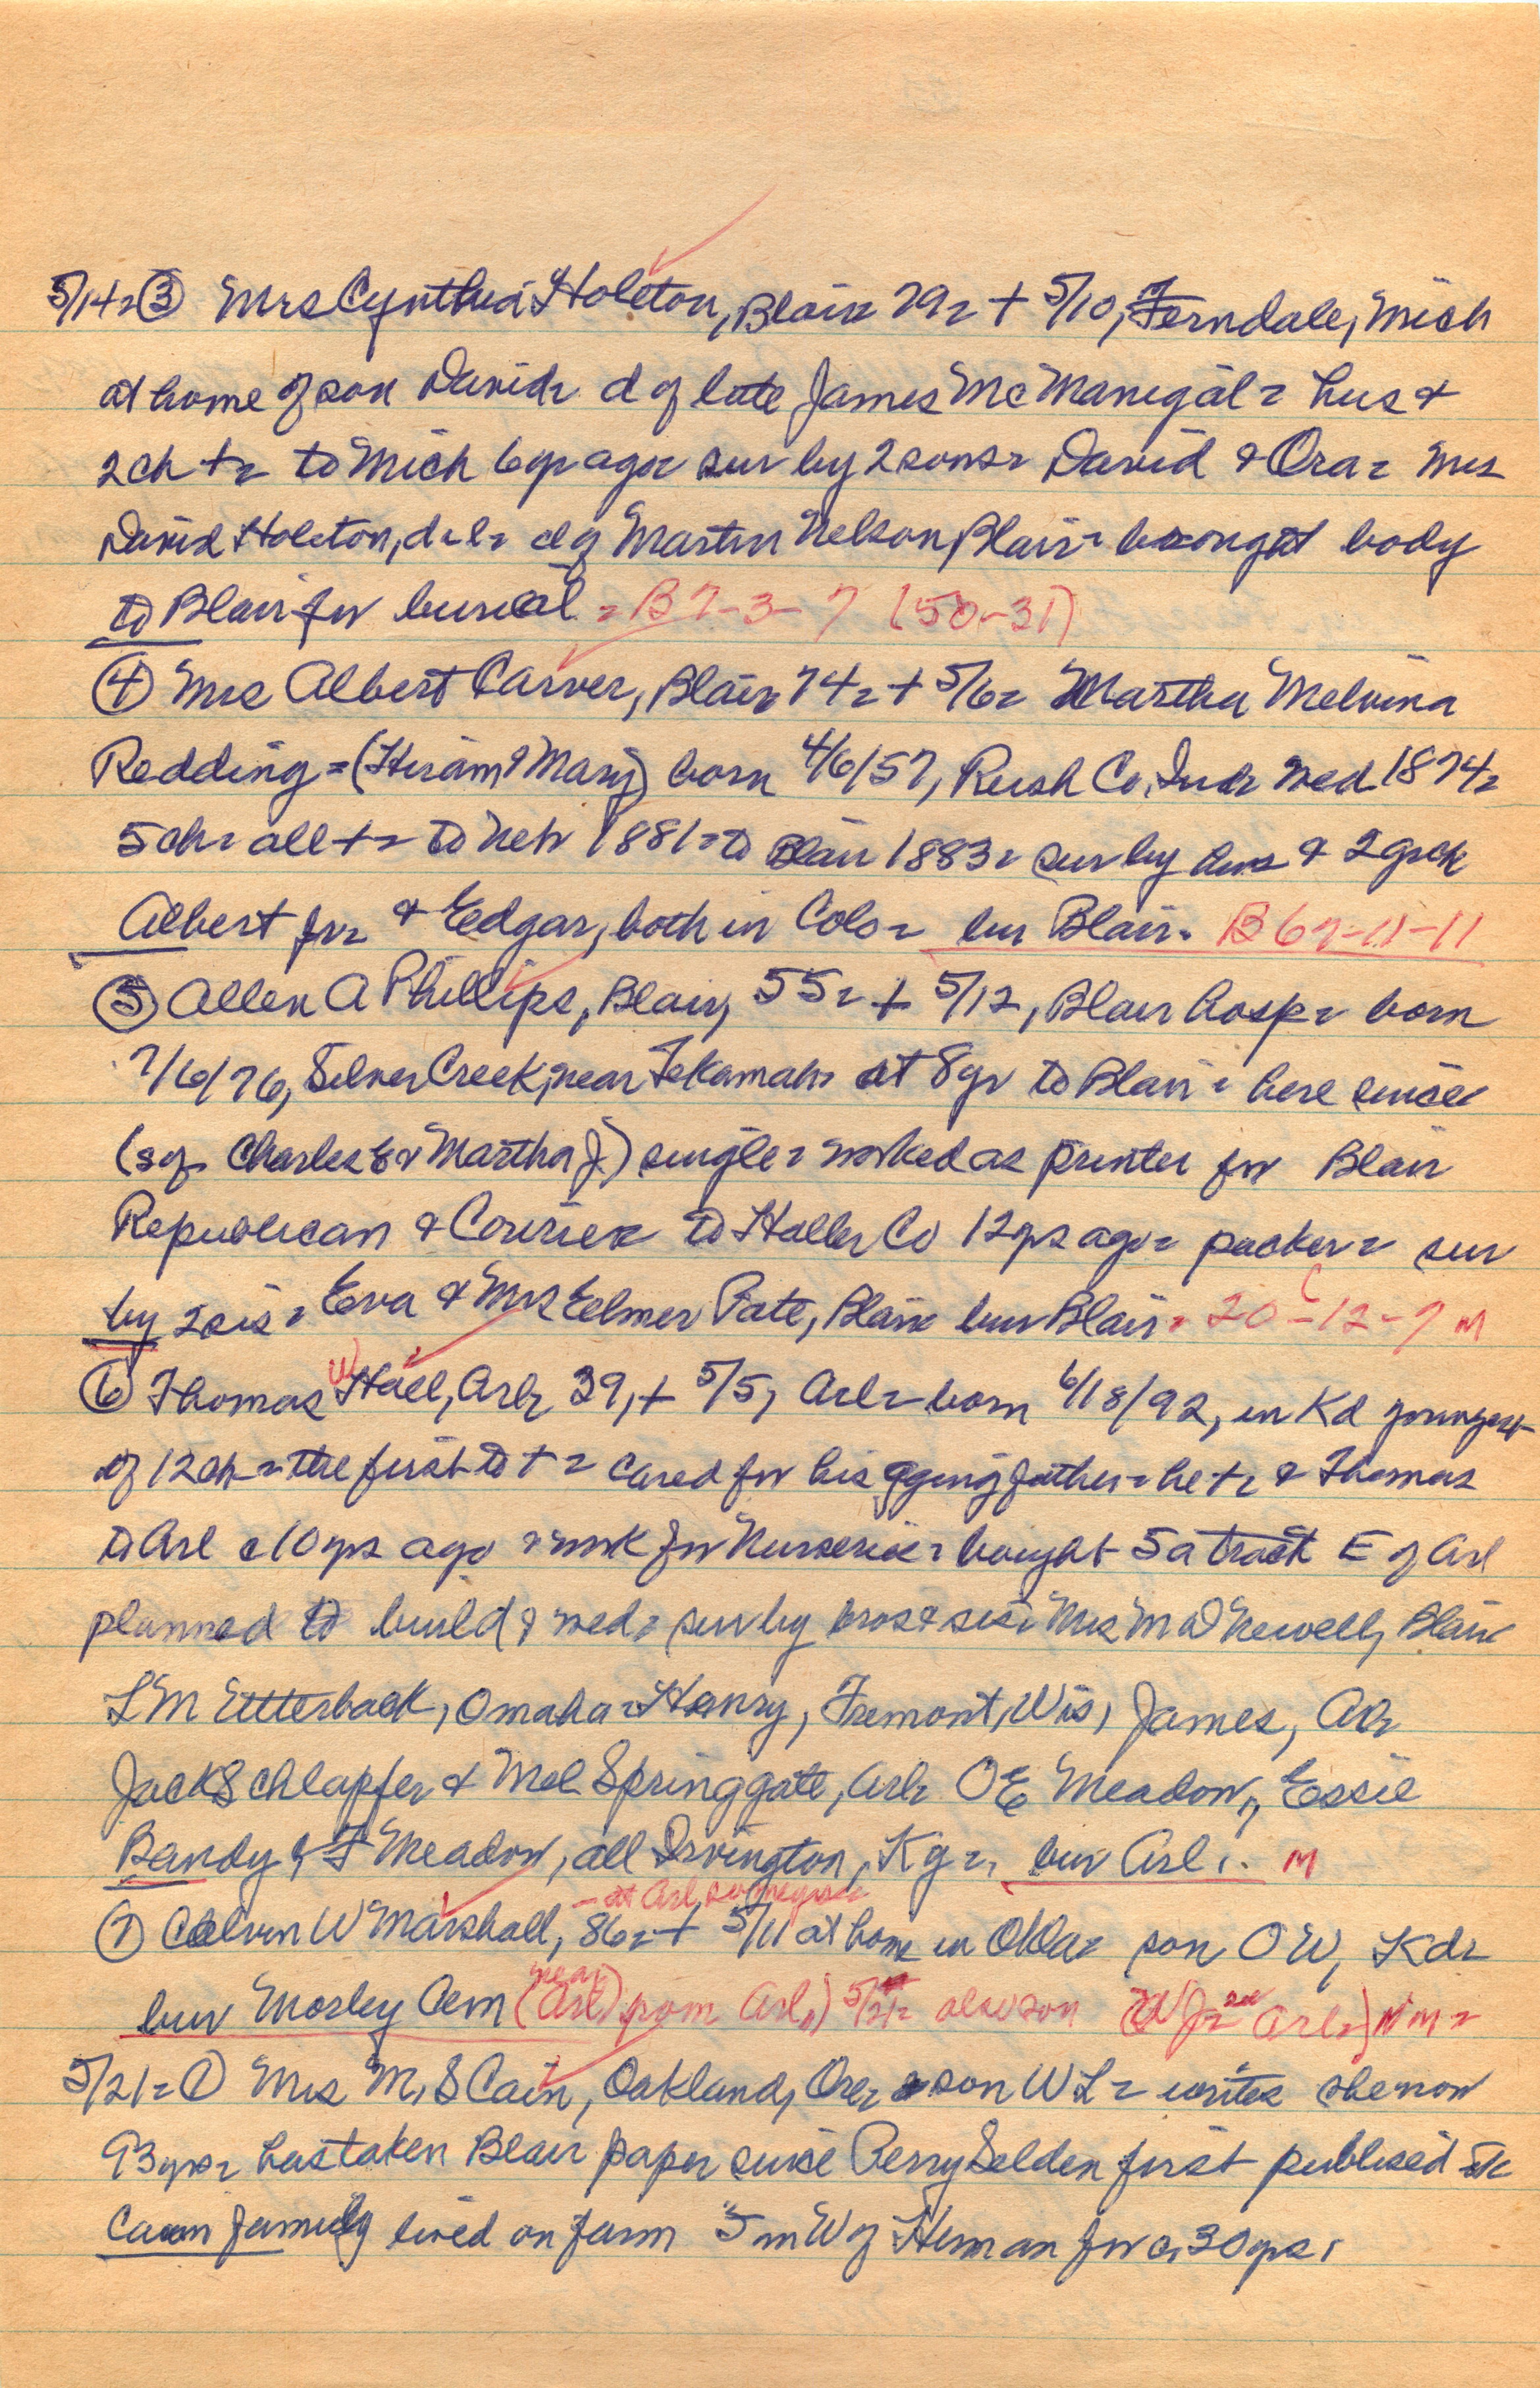 5/14= ③ Mrs Cynthia Holeton, Blair 79= + 5/10, Ferndale, Mich
at home of son David= d of late James McManigal= hus &
2 ch += to Mich 6 yr ago= sur by 2 sons= David & Ora= Mrs
David Holeton, d-l= d of Martin Nelson, Blair= brought body
to Blair for burial = B7-3-7 (50-31)
④ Mrs Albert Carver, Blair 74= + 5/6= Martha Melvina
Redding=(Hiram & Mary) born 4/6/57, Rush Co, Ind= wed 1874=
5 ch= all += to Neb 1881= to Blair 1883= sur by hus & 2 gsch
Albert jr= & Edgar, both in Colo= bur Blair. B 67-11-11
⑤ Allen A Phillips, Blair, 55= + 5/12, Blair hosp= born
7/6/76, Silver Creek, near Tekamah= at 8 yr to Blair= here since
(sg= Charles E & Martha J) single= worked as printer for Blair
Republican & Courier= to Haller Co 12 yrs ago= packer= sur
by 2 sis= Eva & Mrs Elmer Pate, Blair= bur Blair= 20-12-7 M
C
⑥ Thomas W Hall, Arl= 39, + 5/5, Arl= born 6/18/92, in Kd youngest
of 12 ch= the first to += cared for his aging father= he += & Thomas
to Arl c 10 yrs ago & work for Nurseries= bought 5a tract E of Arl
planned to build & wed= sur by bros & sis= Mrs M D Newell, Blair
L M Utterback, Omaha= Henry, Fremont, Wis, James,
Jack Schlapfer & Mel Springgate, Arl= O E Meadow, Essie
Bandy & F Meadow, all Irvington, Ky=, bur Arl. M
- at Arl
⑦ Calvin W Marshall, 86= + 5/11 at home in Okla= son O W, Kd=
bur Morley Cem (near Arl) from Arl,) 5/21= also son Arl=) N M=
5/21= ① Mrs M, S Cain, Oakland, Ore= son W L= writes she now
93 yrs= has taken Blair paper since Perry Selden first publised it=
Cain family lived on farm 5 m W of Herman for c, 30 yrs,